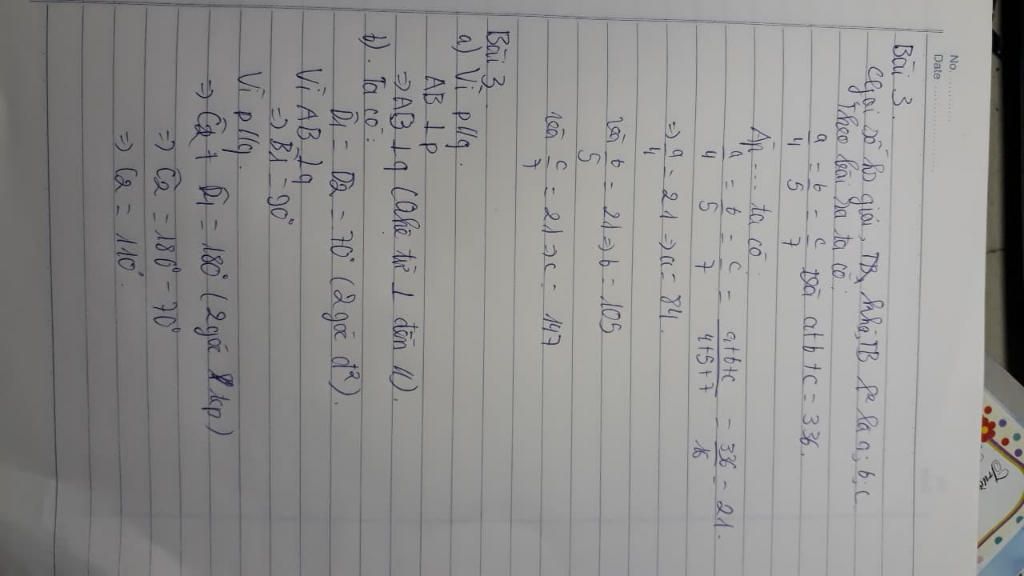 No.
Date
Bài 3.
Gọi số hs giỏi, TB, khá, TB lần lượt là a, b, c
Theo bài ra ta có:
a/4 = b/5 = c/7 và a+b+c = 336.
Áp ... ta có:
a/4 = b/5 = c/7 = a+b+c/4+5+7 = 336/16 = 21.
⇒ a/4 = 21 ⇒ a = 84.
và b/5 = 21 ⇒ b = 105
và c/7 = 21 ⇒ c = 147
Bài 3
a) Vì p//q.
AB ⊥ p
⇒ AB ⊥ q (Qhệ từ ⊥ đến //).
b). Ta có:
D̂1 = D̂2 = 70° (2 góc đ²).
Vì AB ⊥ q
⇒ B̂1 = 90°
Vì p//q.
⇒ Ĉ2 + D̂1 = 180° (2 góc tcp)
⇒ Ĉ2 = 180° - 70°
⇒ Ĉ2 = 110°.